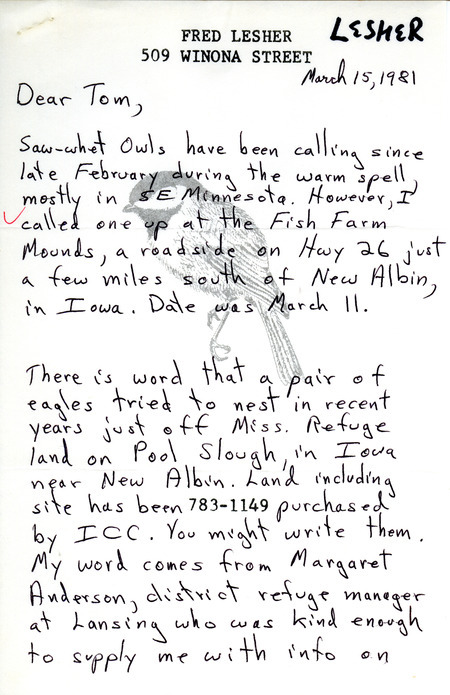 FRED LESHER
LESHER
509 WINONA STREET
March 15, 1981
Dear Tom,
Saw-whet Owls have been calling since
late February during the warm spell,
mostly in SE Minnesota. However, I
called one up at the Fish Farm
Mounds, a roadside on Hwy 26 just
a few miles south of New Albin,
in Iowa. Date was March 11.
There is word that a pair of
eagles tried to nest in recent
years just off Miss. Refuge
land on Pool Slough, in Iowa
near New Albin. Land including
site has been 783-1149 purchased
by ICC. You might write them.
My word comes from Margaret
Anderson, district refuge manager
at Lansing who was kind enough
to supply me with info on